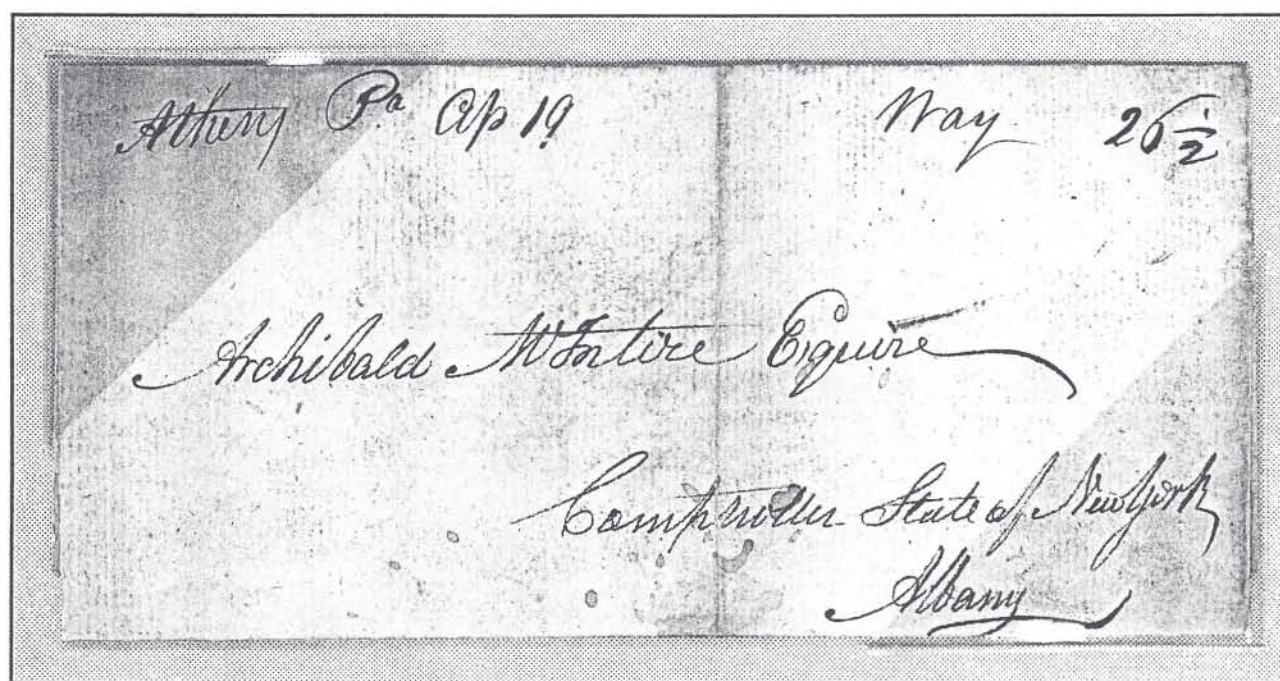 Athens Pa Ap 19 Way 26 1/2
Archibald McIntire Esquire
Comptroller State of New York
Albany